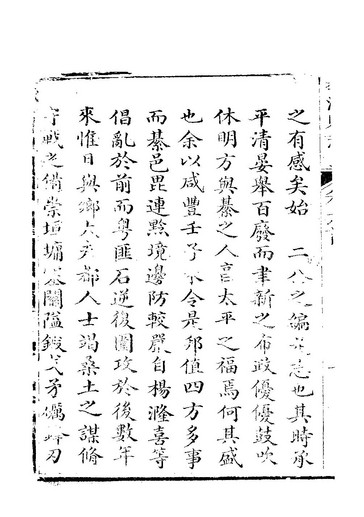 之有感矣始 二公之編是志也其時承
平清晏舉百廢而聿新之布政優優鼓吹
休明方與綦之人言太平之福焉何其盛
也余以咸豐壬子 令是邦值四方多事
而綦邑毘連黔境邊防較嚴自楊漋喜等
倡亂於前而粵匪石逆復圍攻於後數年
來惟日與鄉大夫都人士竭桑土之謀脩
守戰之備崇垣墉 關隘鍛戈矛礪鋒刃